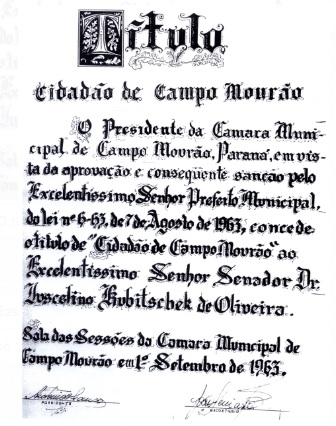 Título
Cidadão de Campo Mourão
O Presidente da Camara Muni-
cipal de Campo Mourão, Paraná, em vis-
ta da aprovação e consequente sanção pelo
Excelentissimo Senhor Prefeito Municipal,
da lei nº 6-63, de 7 de Agosto de 1963, concede
o titulo de "Cidadão de Campo Mourão" ao
Excelentissimo Senhor Senador Dr.
Juscelino Kubitschek de Oliveira.
Sala das Sessões da Camara Municipal de
Campo Mourão em 1º Setembro de 1963.
PRESIDENTE
1º SECRETÁRIO